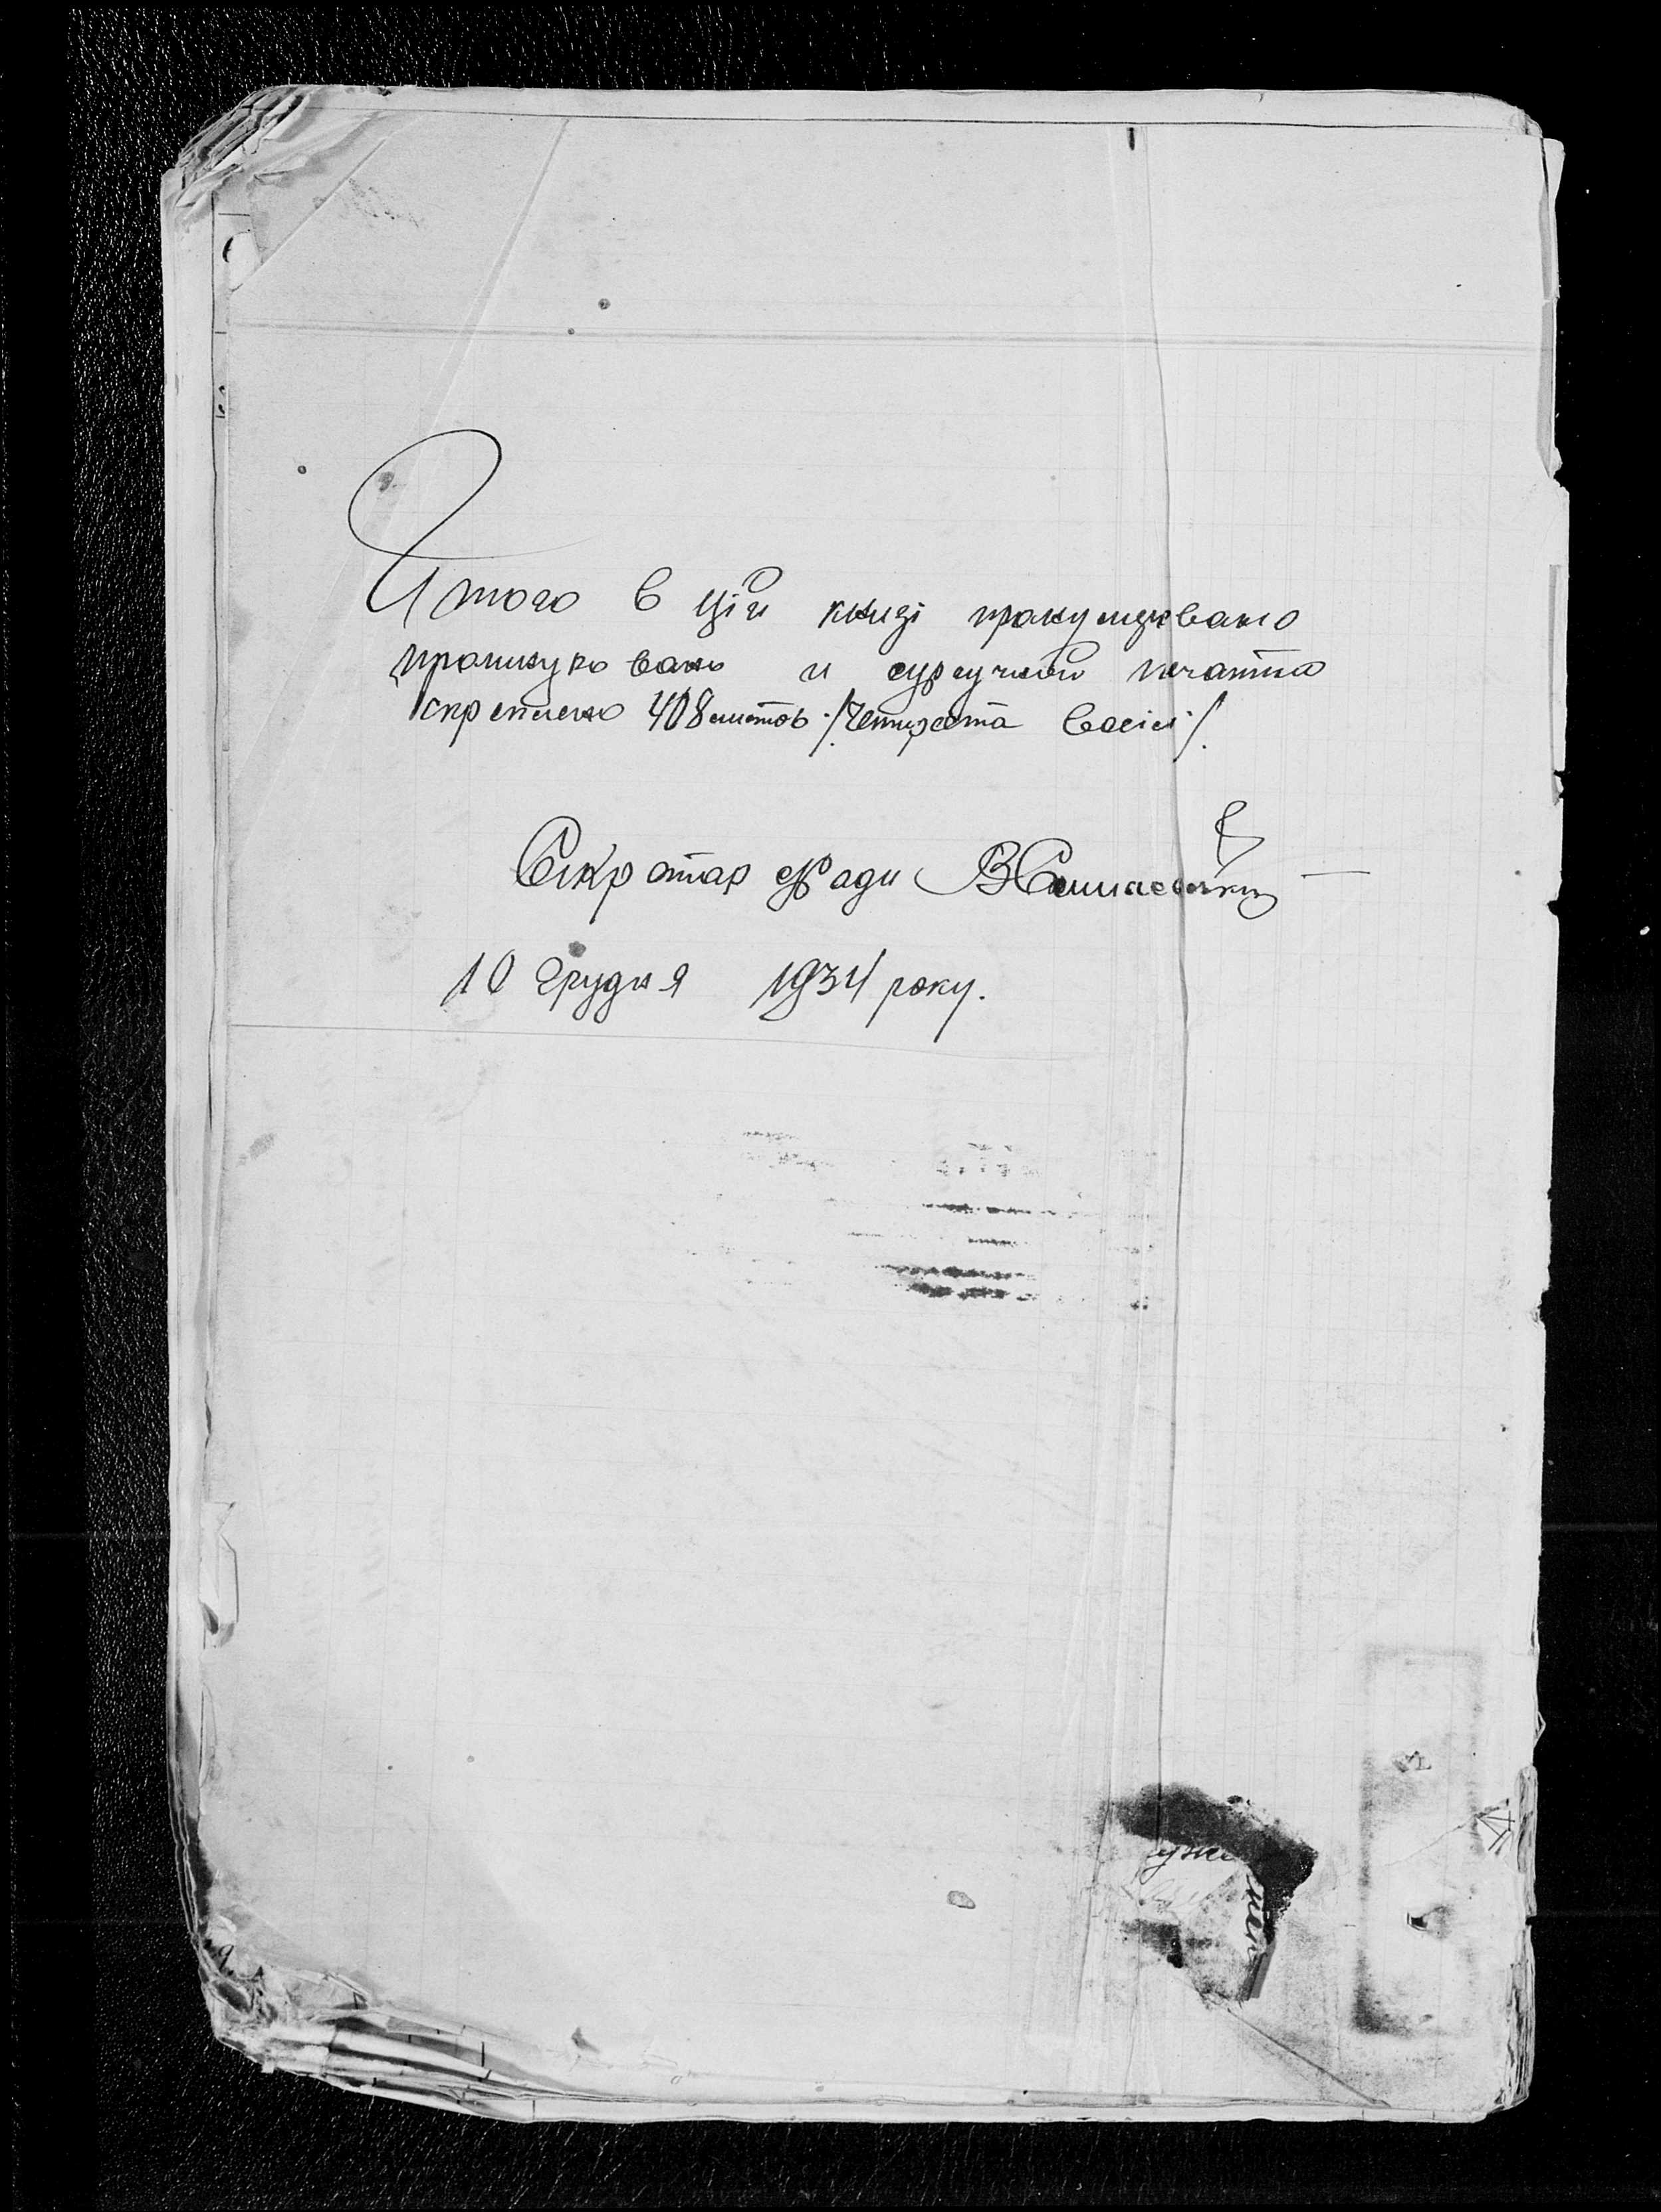 Итого в цій книзі пронумеровано
прошнуровано и сургучной печаттю
скреплено 408 листов ·/. Чтириста восім ·/.
Секретар Ради
10 Грудня 1934 року.